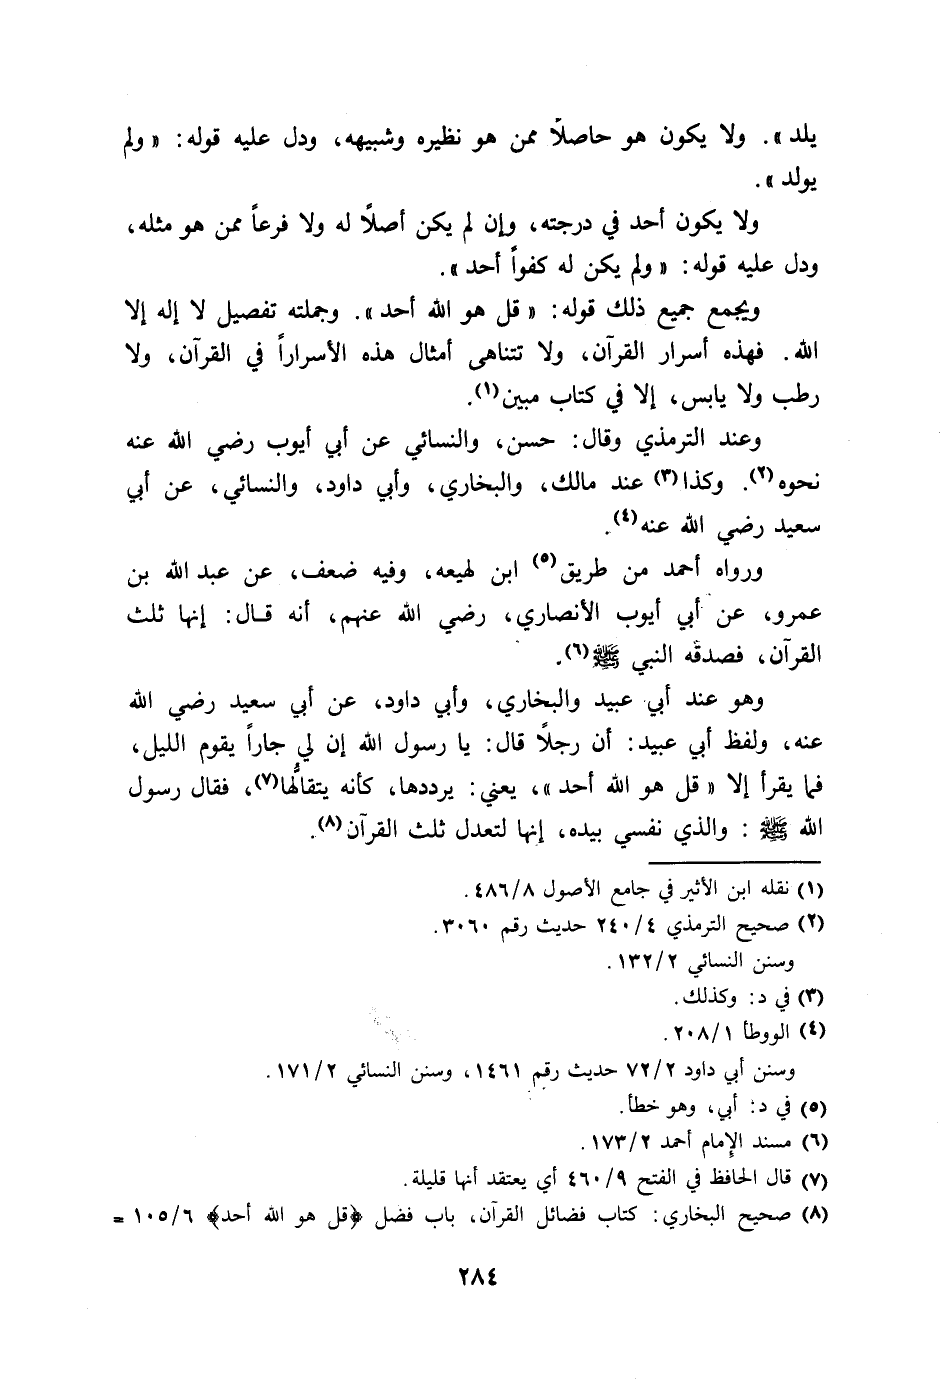 يلد». ولا يكون هو حاصلاً ممن هو نظيره وشبيهه، ودل عليه قوله: «ولم
يولد».
ولا يكون أحد في درجته، وإن لم يكن أصلاً له ولا فرعاً ممن هو مثله،
ودل عليه قوله: «ولم يكن له كفواً أحد».
ويجمع جميع ذلك قوله: «قل هو الله أحد». وجملته تفصيل لا إله إلا
الله. فهذه أسرار القرآن، ولا تتناهى أمثال هذه الأسراراً في القرآن، ولا
رطب ولا يابس، إلا في كتاب مبين(١).
وعند الترمذي وقال: حسن، والنسائي عن أبي أيوب رضي الله عنه
نحوه(٢). وكذا(٣) عند مالك، والبخاري، وأبي داود، والنسائي، عن أبي
سعيد رضي الله عنه(٤).
ورواه أحمد من طريق(٥) ابن لهيعه، وفيه ضعف، عن عبد الله بن
عمرو، عن أبي أيوب الأنصاري، رضي الله عنهم، أنه قال: إنها ثلث
القرآن، فصدقه النبي ﷺ(٦).
وهو عند أبي عبيد والبخاري، وأبي داود، عن أبي سعيد رضي الله
عنه، ولفظ أبي عبيد: أن رجلاً قال: يا رسول الله إن لي جاراً يقوم الليل،
فما يقرأ إلا «قل هو الله أحد»، يعني: يرددها، كأنه يتقالُّها(٧)، فقال رسول
الله ﷺ: والذي نفسي بيده، إنها لتعدل ثلث القرآن(٨).
(١) نقله ابن الأثير في جامع الأصول ٤٨٦/٨.
(٢) صحيح الترمذي ٢٤٠/٤ حديث رقم ٣٠٦٠.
وسنن النسائي ١٣٢/٢.
(٣) في د: وكذلك.
(٤) الووطأ ٢٠٨/١.
وسنن أبي داود ٧٢/٢ حديث رقم ١٤٦١، وسنن النسائي ١٧١/٢.
(٥) في د: أبي، وهو خطأ.
(٦) مسند الإمام أحمد ١٧٣/٢.
(٧) قال الحافظ في الفتح ٤٦٠/٩ أي يعتقد أنها قليلة.
(٨) صحيح البخاري: كتاب فضائل القرآن، باب فضل ﴿قل هو الله أحد﴾ ١٠٥/٦ =
٢٨٤